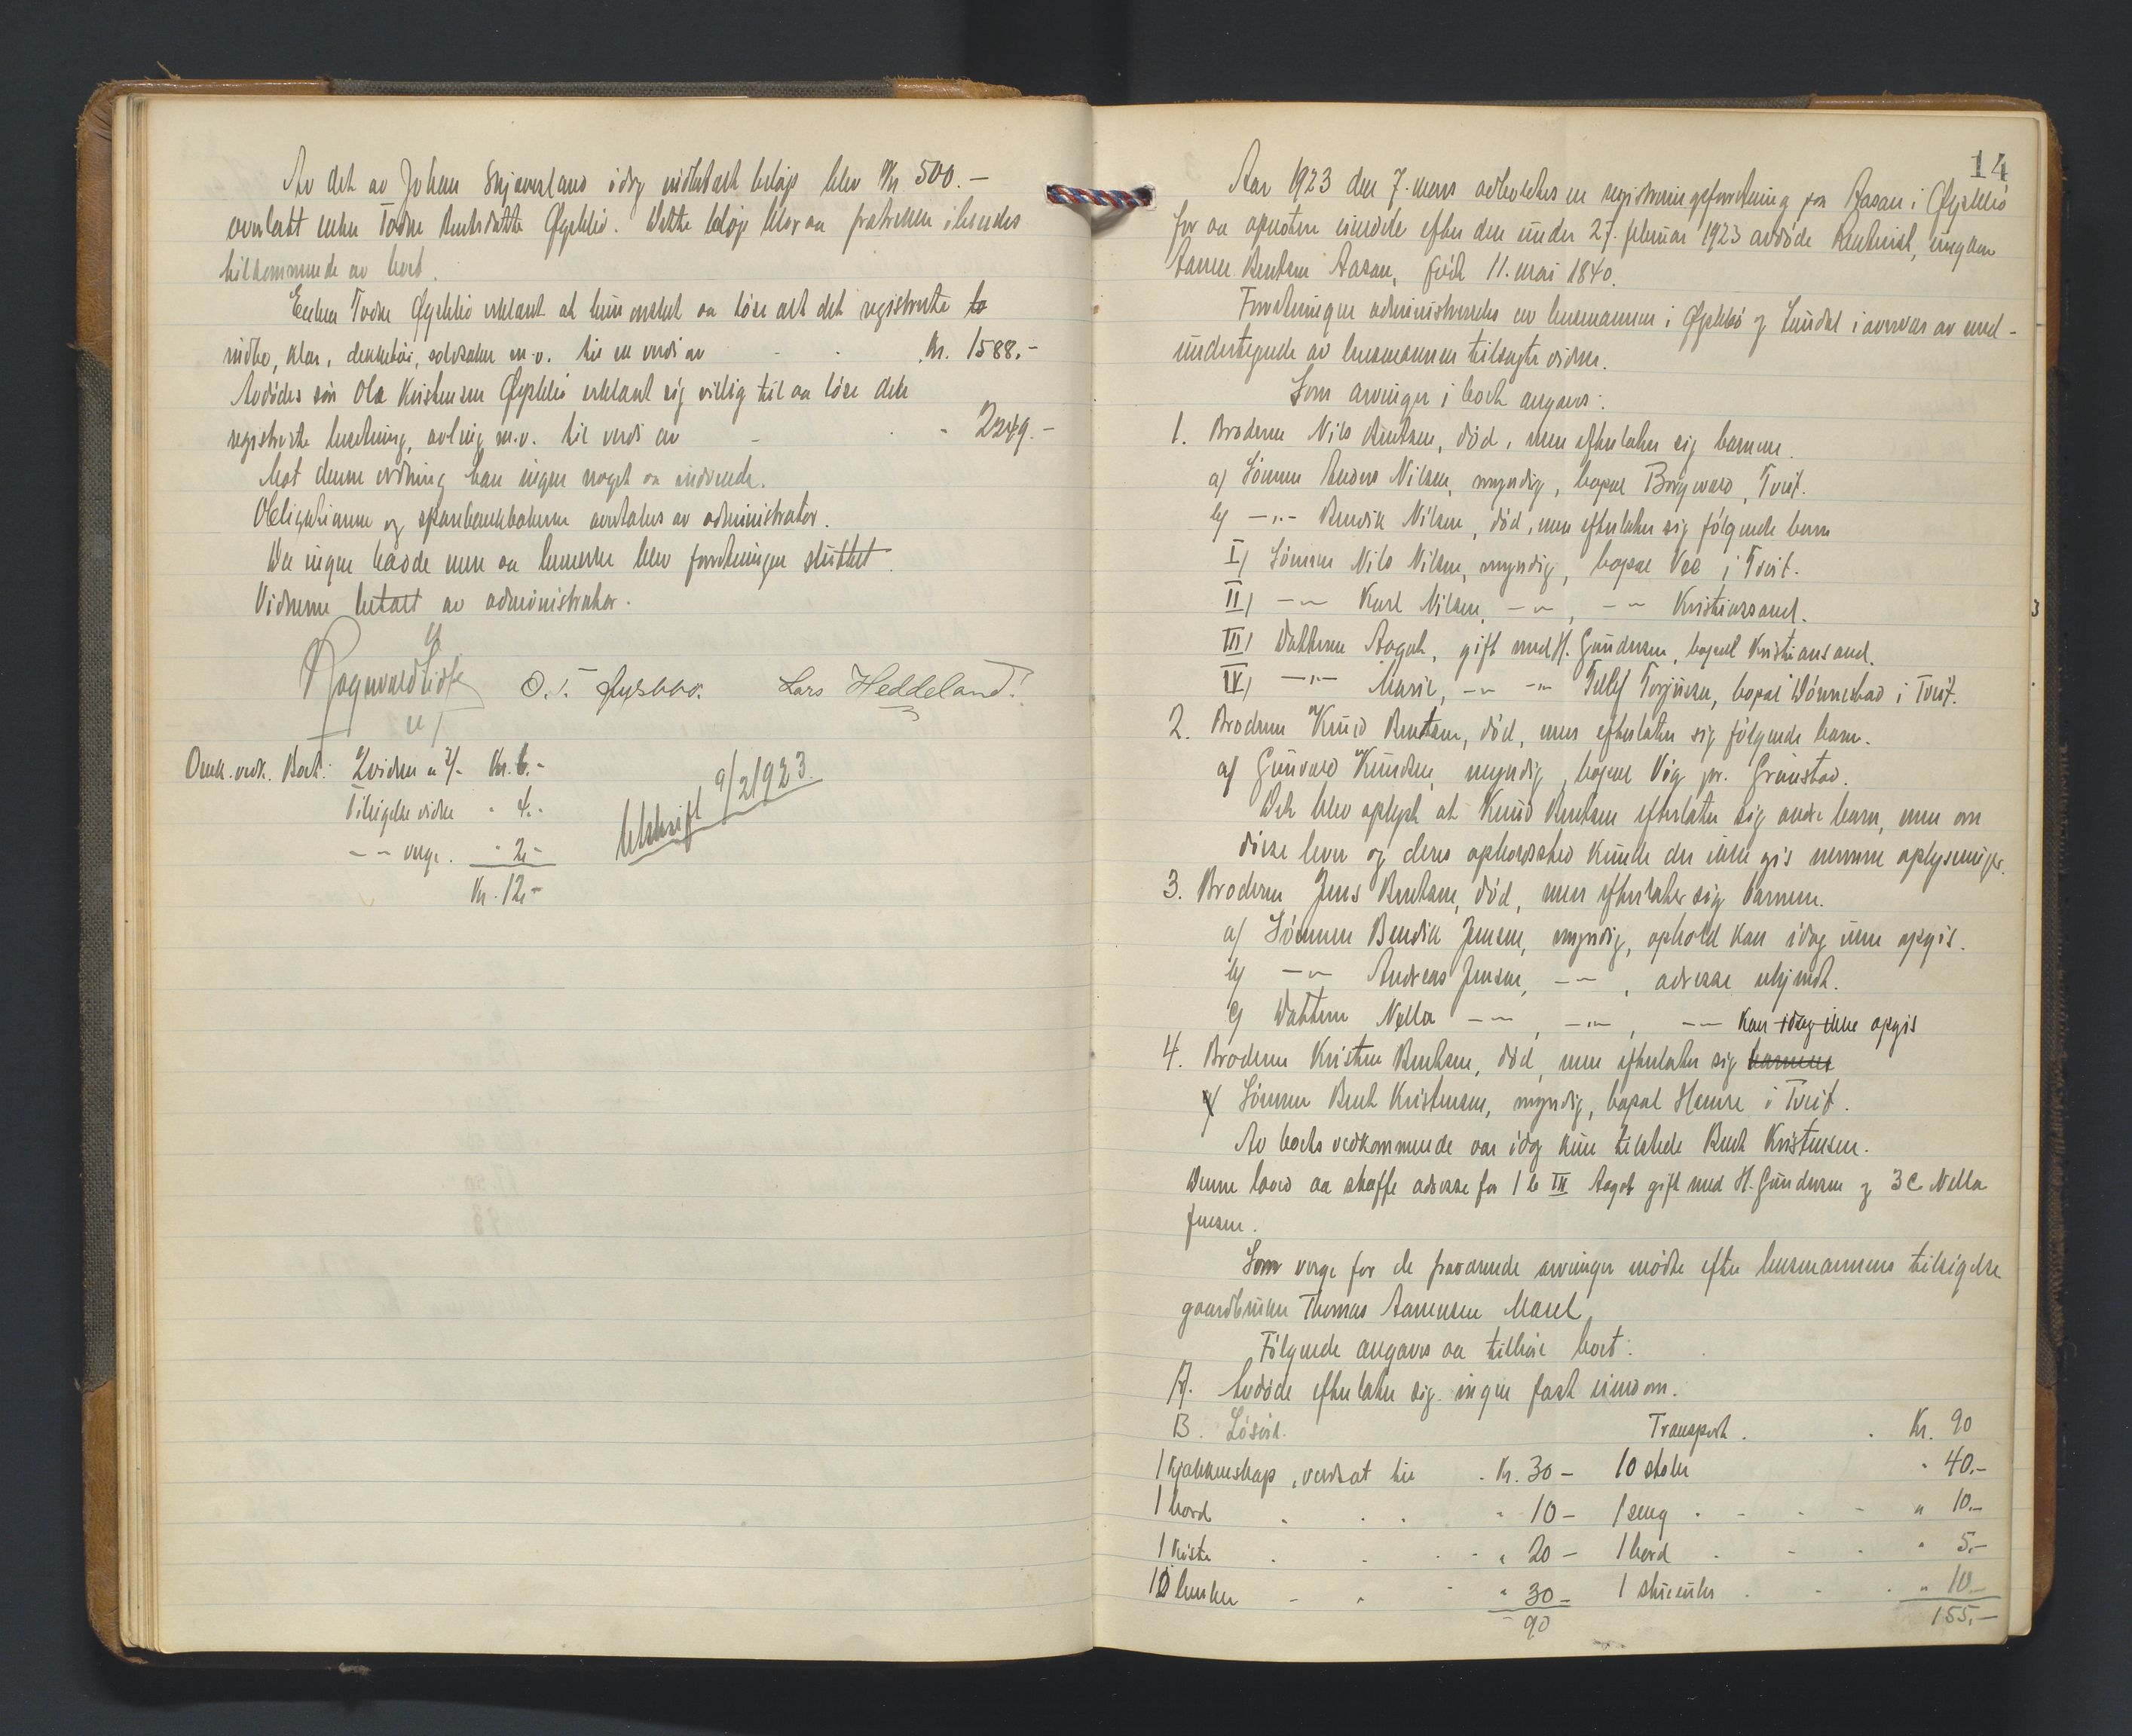 Av det av Johan Skjævesland idag indbetalt beløp blev Kr. 500.-
overlatt enken Todne Bentsdatter Øyslebø. Dette beløp blev aa fratrekke i hendes
tilkommende av boet.
Enken Todne Øyslebø erklært at hun ønsket aa løse alt det registrerte
indbo, klær, dækketøi, solvsaker m.v. til en verdi av Kr. 1588.-
Avdødes søn Ola Kristensen Øyslebø erklært sig villig til aa løse den
registrerte besetning, avling m.v. til verdi av " 2249.-
Mot denne ordning har ingen noget at indvende.
Obligationene og sparebankbøkerne avertales av administrator.
Da ingen havde mere at bemerke blev forretningen sluttet.
Vidnerne betalt av administrator.
Ragnvald Lidt O. T. Øyslebø. Lars Heddeland.
Omk. vedk. Boet: 2 vidner a 3/- Kr. 6.-
Tilsigelse vidner " 4.-
- - verge. " 2.-
Kr. 12.-
Utskrift 9/2 1923.
14
Aar 1923 den 7. mars avholdtes en registreringsforretning paa Aasan i Øyslebø
for aa opnotere eiendele efter den under 27. februar 1923 avdøde kentenist, ungkar
Aanen Bentsen Aasan, født 11. mai 1840.
Forretningen administreredes av lensmannen i Øyslebø og Laudal i overvær av med-
undertegnede av lensmannen tilsagte vidner.
Som arvinger i boet angaves:
1. Broderen Nils Bentsen, død, men efterlater sig barnene.
a) Sønnen Anders Nilsen, myndig, bopæl Bringsvær, Tveit.
b) -"- Bendik Nilsen, død, men efterlater sig følgende barn
I) Sønnen Nils Nilsen, myndig, bopæl Vee i Tveit.
II) -"- Karl Nilsen, -"-, -"- Kristiansand.
III) Datteren Aagot, gift med H. Gundersen, bopæl Kristiansand.
IV) -"- Marie, -"- -"- Tellef Torjusen, bopæl Dønnestad i Tveit.
2. Broderen Knud Bentsen, død, men efterlater sig følgende barn.
a) Gunvald Knudsen, myndig, bopæl Vig pr. Grimstad.
Det blev oplyst at Knud Bentsen efterlater sig andre barn, men om
disse lever og deres opholdssted kunde der ikke gis nærmere oplysninger.
3. Broderen Jens Bentsen, død, men efterlater sig barnene.
a) Sønnen Bendik Jensen, myndig, ophold kan idag ikke opgis.
b) -"- Andreas Jensen, -"-, adresse ukjendt.
c) Datteren Nella -"-, -"-, -"- kan idag ikke opgis
4. Broderen Kristen Bentsen, død, men efterlater sig barnene
a) Sønnen Bent Kristensen, myndig, bopæl Hamre i Tveit.
Av boets vedkommende var idag kun tilstede Bent Kristensen.
Denne lovet aa skaffe adresse for 1 b III Aagot gift med H. Gundersen og 3 c Nella
Jensen.
Som verge for de fraværende arvinger møtte efter lensmannens tilsigelse
gaardbruker Thomas Aanensen Møsel
Følgende angaves aa tilhøre boet:
A. Avdøde efterlater sig ingen fast eiendom.
B. Løsøre. Transport. Kr. 90
1 kjøkkenskap, verdsat til Kr. 30- 10 stoler " 40.-
1 bord " 10- 1 seng " 10.-
1 kiste " 20- 1 bord " 5.-
10 benker " 30- 1 stueuhr " 10.-
90 155.-